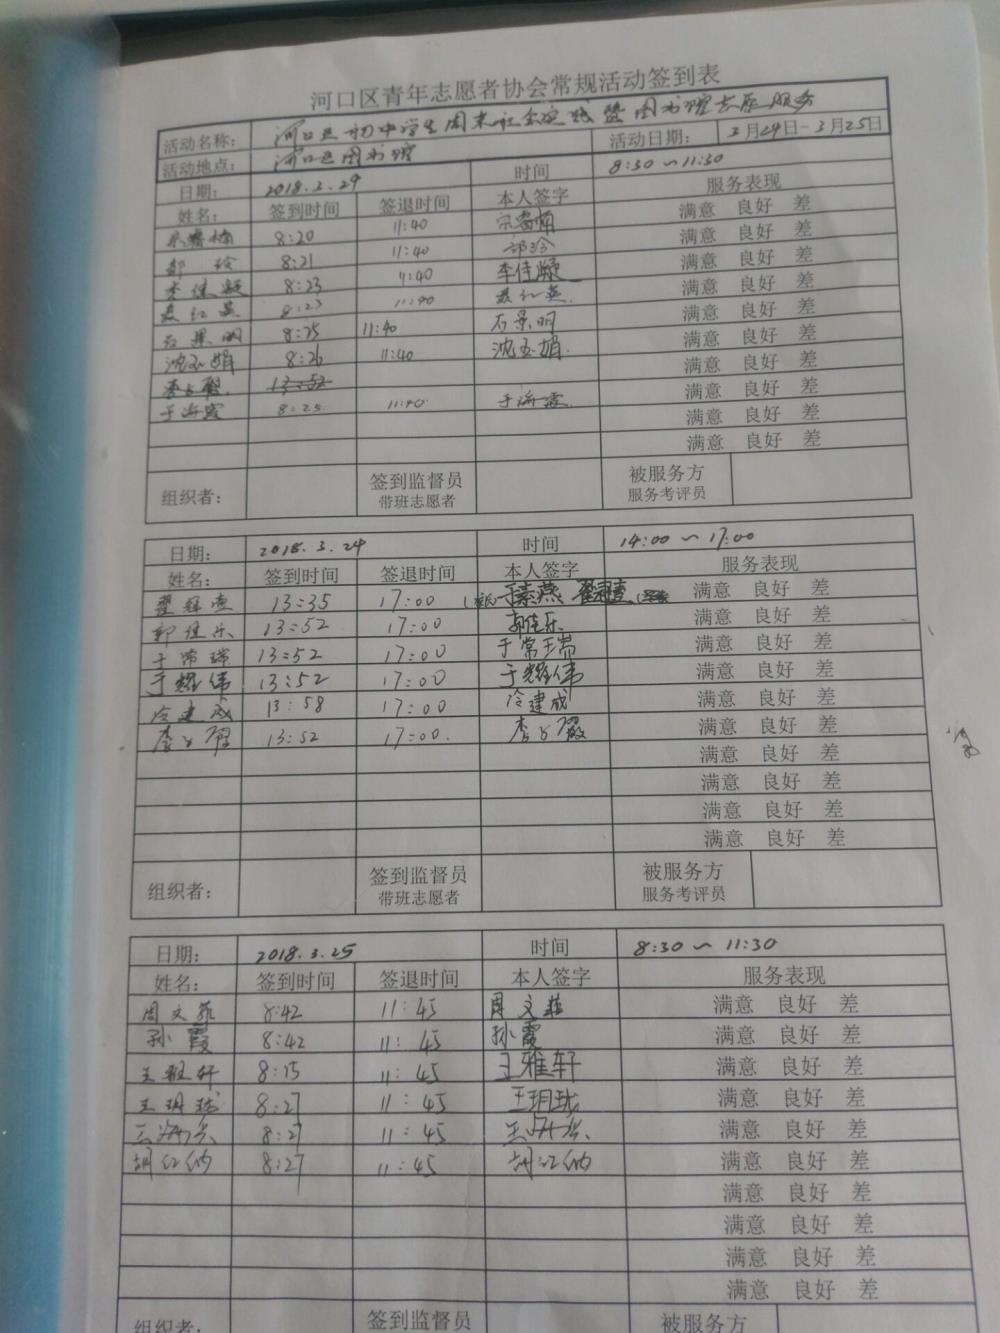 河口区青年志愿者协会常规活动签到表
活动名称: 河口区初中学生周末社会实践暨图书馆志愿服务 活动日期: 3月24日-3月25日
活动地点: 河口区图书馆
日期: 2018.3.24 时间 8:30~11:30
姓名: 签到时间 签退时间 本人签字 服务表现
8:20 11:40 满意 良好 差
8:21 11:40 满意 良好 差
李佳凝 8:23 11:40 李佳凝 满意 良好 差
聂红英 8:23 11:40 聂红英. 满意 良好 差
石景明 8:25 11:40 石景明 满意 良好 差
沈玉娟 8:26 11:40 沈玉娟. 满意 良好 差
13:52 满意 良好 差
于海霞 8:25 11:40 于海霞. 满意 良好 差
满意 良好 差
满意 良好 差
组织者: 签到监督员 带班志愿者 被服务方 服务考评员
日期: 2018.3.24 时间 14:00~17:00
姓名: 签到时间 签退时间 本人签字 服务表现
13:35 17:00 于素燕 满意 良好 差
郭佳乐 13:52 17:00 郭佳乐 满意 良好 差
于常瑞 13:52 17:00 于常瑞 满意 良好 差
于耀伟 13:52 17:00 于耀伟 满意 良好 差
冷建成 13:58 17:00 冷建成 满意 良好 差
13:52 17:00. 满意 良好 差
满意 良好 差
满意 良好 差
满意 良好 差
满意 良好 差
组织者: 签到监督员 带班志愿者 被服务方 服务考评员
日期: 2018.3.25 时间 8:30~11:30
姓名: 签到时间 签退时间 本人签字 服务表现
周文菲 8:42 11:45 周文菲 满意 良好 差
孙霞 8:42 11:45 孙霞 满意 良好 差
王雅轩 8:15 11:45 王雅轩 满意 良好 差
王玥珑 8:27 11:45 王玥珑 满意 良好 差
8:27 11:45 满意 良好 差
胡红纳 8:27 11:45 胡红纳 满意 良好 差
满意 良好 差
满意 良好 差
满意 良好 差
满意 良好 差
组织者: 签到监督员 被服务方